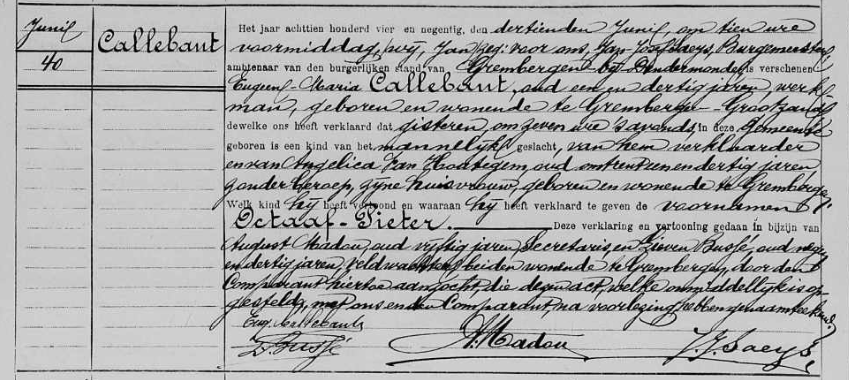 Junij
40
Callebaut
Het jaar achttien honderd vier en negentig, den dertienden Junij, om tien ure
voormiddag, voor ons, Jan Jozef Saeys, Burgemeester
ambtenaar van den burgerlijken stand van Grembergen bij Dendermonde, is verschenen
Eugeen-Maria Callebaut, oud een en dertig jaren, werk-
man, geboren en wonende te Grembergen-Grootzand
dewelke ons heeft verklaard dat gisteren, om zeven ure 's avonds, in deze Gemeente
geboren is een kind van het mannelijk geslacht, van hem verklaarder
en van Angelica Van Hoategem, oud omtrent een en dertig jaren
zonder beroep, zijne huisvrouw, geboren en wonende te Grembergen.
Welk kind hij heeft vertoond en waaraan hij heeft verklaard te geven de voornamen
Octaaf-Pieter. Deze verklaring en vertooning gedaan in bijzijn van
August Madou, oud vijftig jaren, Secretaris, en Livien Bussé, oud negen
en dertig jaren, veldwachter, beiden wonende te Grembergen, door den
Comparant hiertoe aanzocht, die dezen act, welke onmiddellijk is op-
gesteld, met ons en den Comparant, na voorlezing hebben genaamteekend.
Eug. Callebaut
L. Bussé
A. Madou
J. J. Saeys